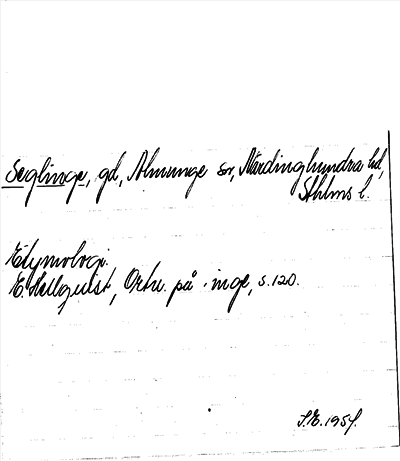 Seglinge, gd, Almunge sn, Närdinghundra hd,
Sthlms l.
Etymologi.
E. Hellquist, Ortn. på -inge, s. 120.
S.E. 1954.